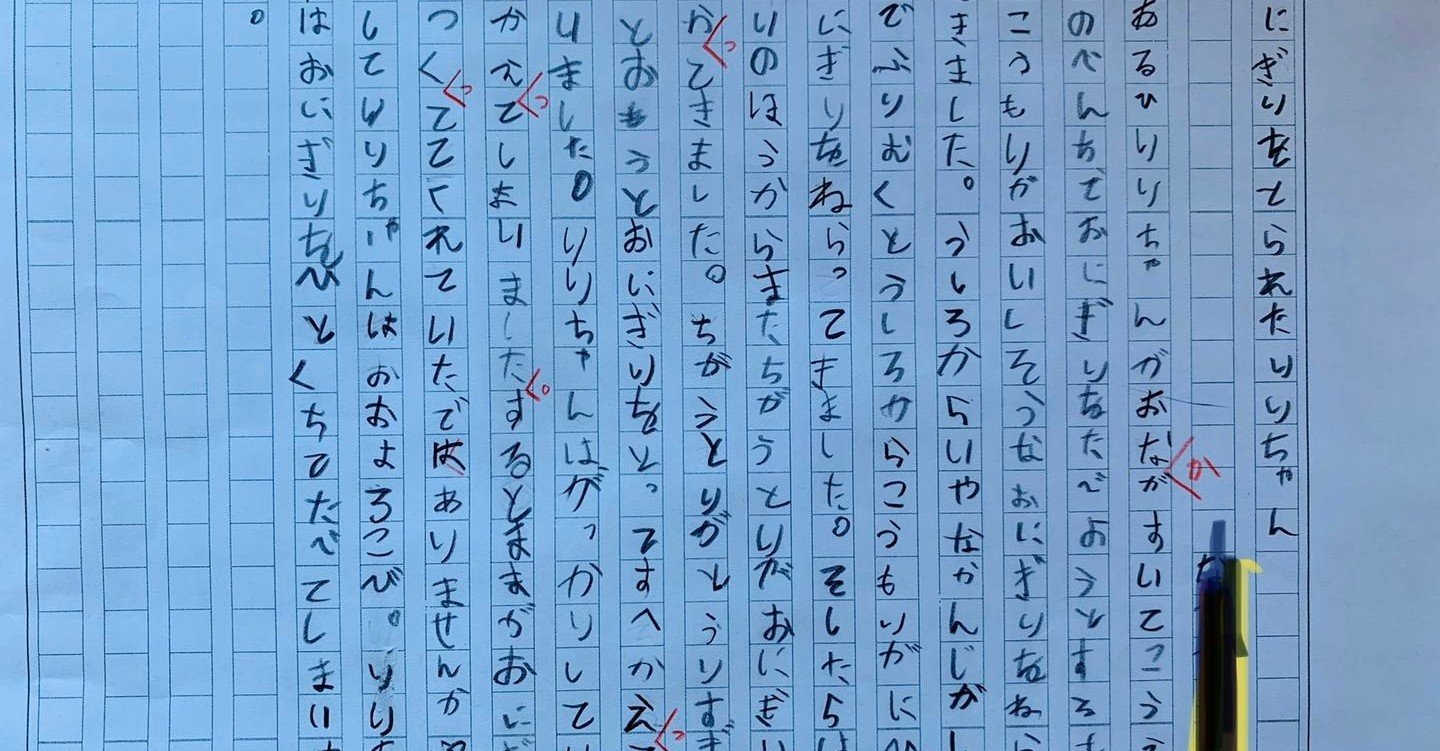 にぎりをとられたりりちゃん
あるひりりちゃんがおなかがすいてこう
のべんちでおにぎりをたべようとする
こうもりがおいしそうなおにぎりをねら
きました。うしろからいやなかんじがし
でふりむくとうしろからこうもりがに
にぎりをねらってきました。そしたら
りのほうからまたちがうとりがおにぎ
かってきました。ちがうとりがとうりすぎ
とおもうとおにぎりをとってすへかえっ
りました。りりちゃんはがっかりして
かえってしまいました。するとままがおに
つくってててくれていたではありませんか
してりりちゃんはおおよろこび。りり
はおにぎりをひとくちでたべてしまい
。